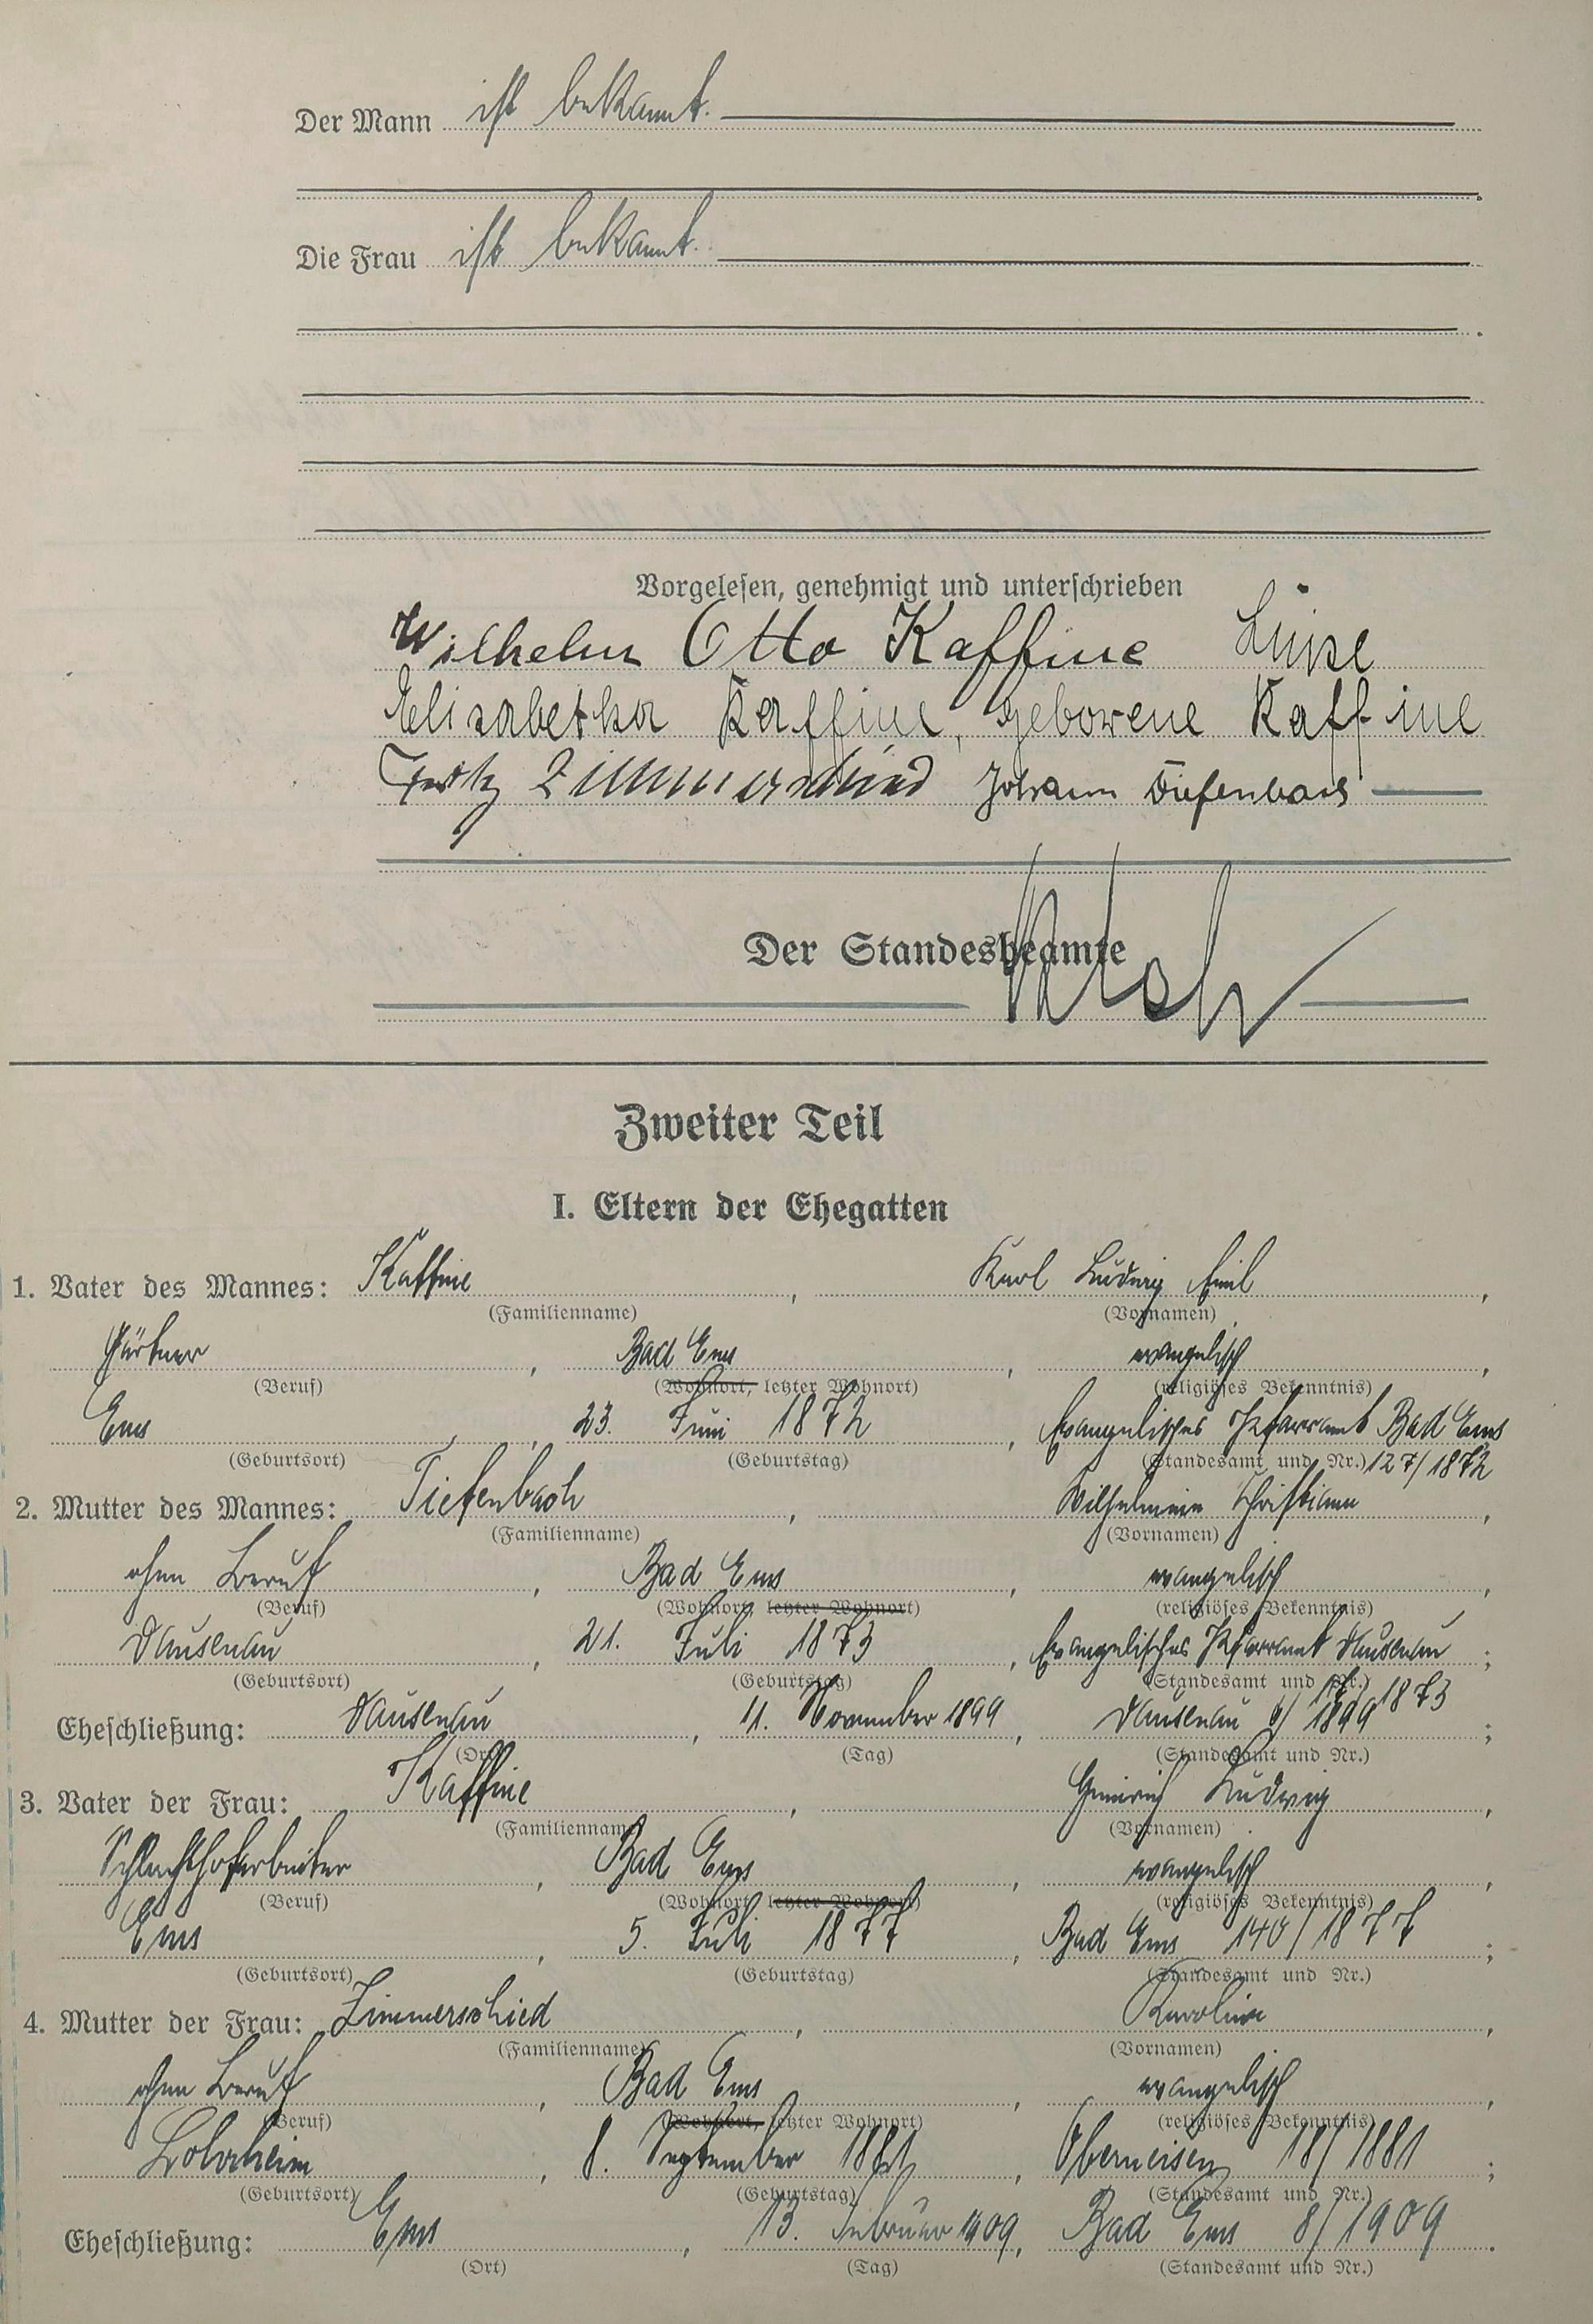 Der Mann ist bekannt.
Die Frau ist bekannt.
Vorgelesen, genehmigt und unterschrieben
Wilhelm Otto Kaffine Luise
Elisabetha Kaffine, geborene Kaffine
Fritz Zimmerschied Johann Diefenbach
Der Standesbeamte
Zweiter Teil
I. Eltern der Ehegatten
1. Vater des Mannes: Kaffine, Karl Ludwig Emil,
(Familienname) (Vornamen)
Gärtner, Bad Ems, evangelisch,
(Beruf) (Wohnort, letzter Wohnort) (religiöses Bekenntnis)
Ems, 23. Juni 1872, Evangelisches Pfarramt Bad Ems
(Geburtsort) (Geburtstag) (Standesamt und Nr.) 127/1872
2. Mutter des Mannes: Tiefenbach, Wilhelmine Christiane,
(Familienname) (Vornamen)
ohne Beruf, Bad Ems, evangelisch,
(Beruf) (Wohnort, letzter Wohnort) (religiöses Bekenntnis)
Dausenau, 21. Juli 1873, Evangelisches Pfarramt Dausenau;
(Geburtsort) (Geburtstag) (Standesamt und Nr.) 1873
Eheschließung: Dausenau, 11. November 1899, Dausenau 6/1899;
(Ort) (Tag) (Standesamt und Nr.)
3. Vater der Frau: Kaffine, Heinrich Ludwig,
(Familienname) (Vornamen)
Schlachthofarbeiter, Bad Ems, evangelisch,
(Beruf) (Wohnort, letzter Wohnort) (religiöses Bekenntnis)
Ems, 5. Juli 1877, Bad Ems 140/1877;
(Geburtsort) (Geburtstag) (Standesamt und Nr.)
4. Mutter der Frau: Zimmerschied, Karoline,
(Familienname) (Vornamen)
ohne Beruf, Bad Ems, evangelisch,
(Beruf) (Wohnort, letzter Wohnort) (religiöses Bekenntnis)
Lohrheim, 8. September 1881, Oberneisen 18/1881;
(Geburtsort) (Geburtstag) (Standesamt und Nr.)
Eheschließung: Ems, 13. Februar 1909, Bad Ems 8/1909.
(Ort) (Tag) (Standesamt und Nr.)